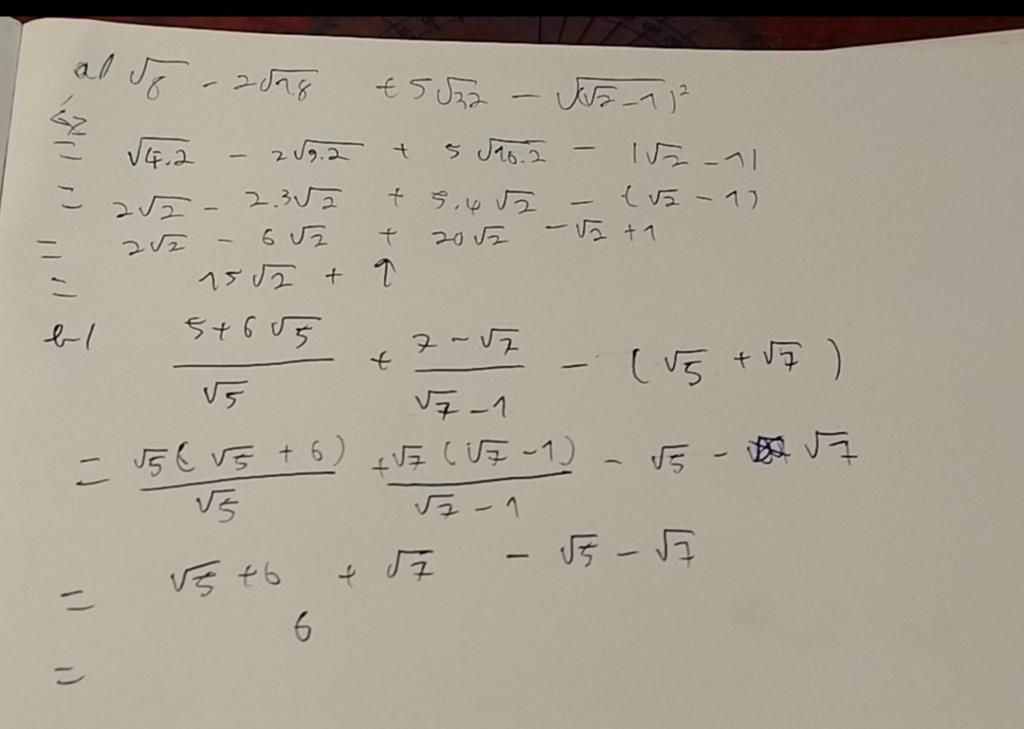 a/ √8 - 2√18 + 5√32 - √(√2-1)²
= √4.2 - 2√9.2 + 5√16.2 - |√2 - 1|
= 2√2 - 2.3√2 + 5.4√2 - (√2 - 1)
= 2√2 - 6√2 + 20√2 - √2 + 1
= 15√2 + 1
b/ (5+6√5)/√5 + (7-√7)/(√7-1) - (√5 + √7)
= √5(√5 + 6)/√5 + √7(√7 - 1)/(√7 - 1) - √5 - √7
= √5 + 6 + √7 - √5 - √7
= 6